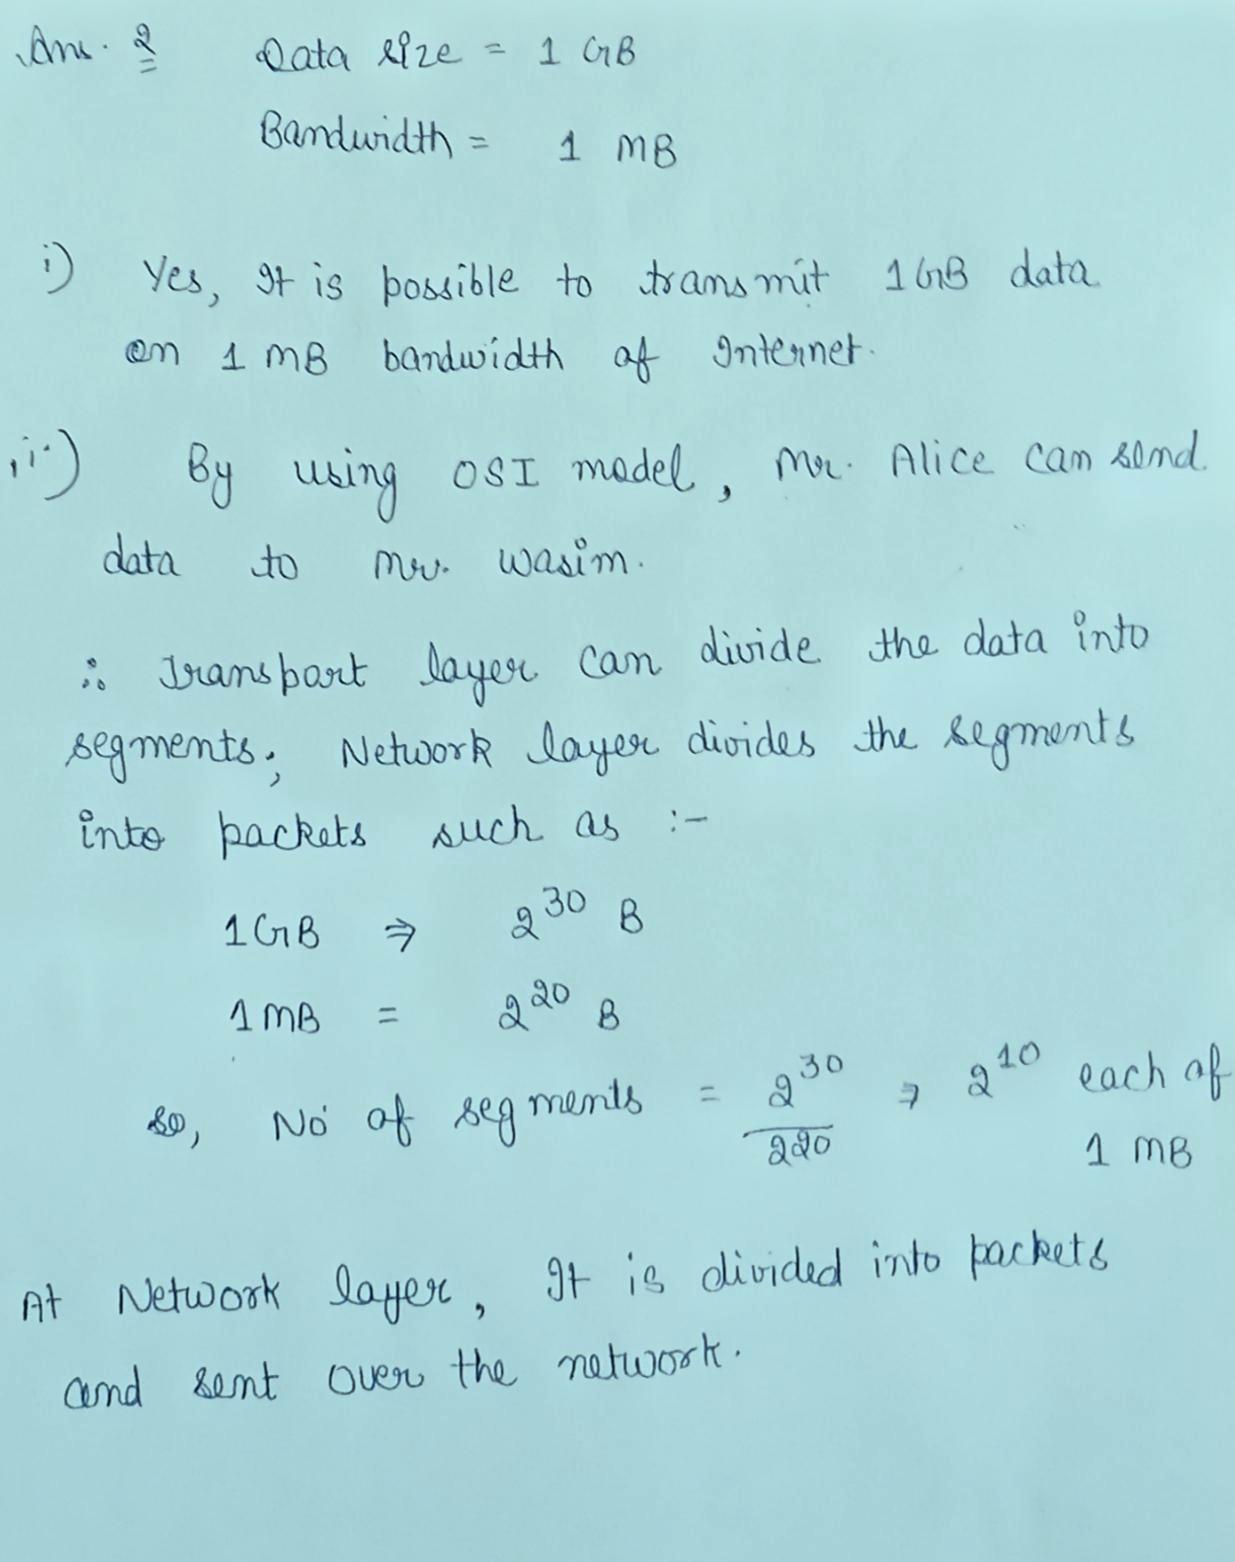 Ans. 2 Data size = 1 GB
Bandwidth = 1 MB
i) Yes, It is possible to transmit 1 GB data
on 1 MB bandwidth of Internet.
ii) By using OSI model, Mr. Alice can send
data to Mr. Wasim.
∴ Transport layer can divide the data into
segments; Network layer divides the segments
into packets such as :-
1 GB ⇒ 2^30 B
1 MB = 2^20 B
so, No of segments = 2^30 / 2^20 ⇒ 2^10 each of
1 MB
At Network layer, It is divided into packets
and sent over the network.